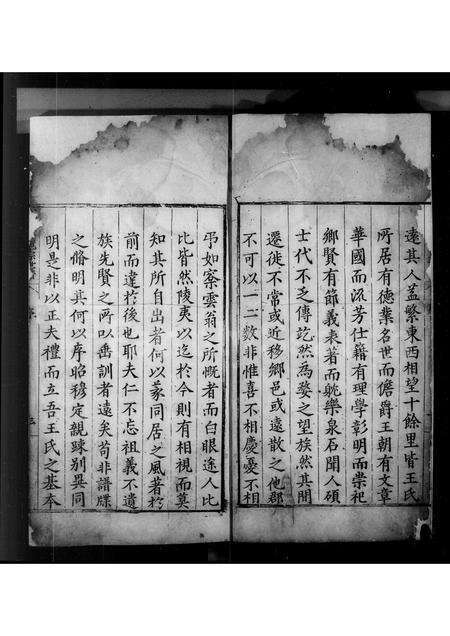 遠其人益繁東西相望十餘里皆王氏
所居有德業名世而儋爵王朝有文章
華國而流芳仕籍有理學彰明而崇祀
鄉賢有節義表著而躭樂泉石聞人碩
士代不乏傳訖然為婺之望族然其間
遷徙不常或近移鄉邑或遠散之他郡
不可以一二數非惟喜不相慶憂不相
弔如寀雲翁之所慨者而白眼途人比
比皆然陵夷以迄於今則有相視而莫
知其所自出者何以篆同居之風著於
前而違於後也耶夫仁不忘祖義不遺
族先賢之所以垂訓者遠矣苟非譜牒
之脩明其何以序昭穆定親踈別異同
明是非以正夫禮而立吾王氏之基本
序
三